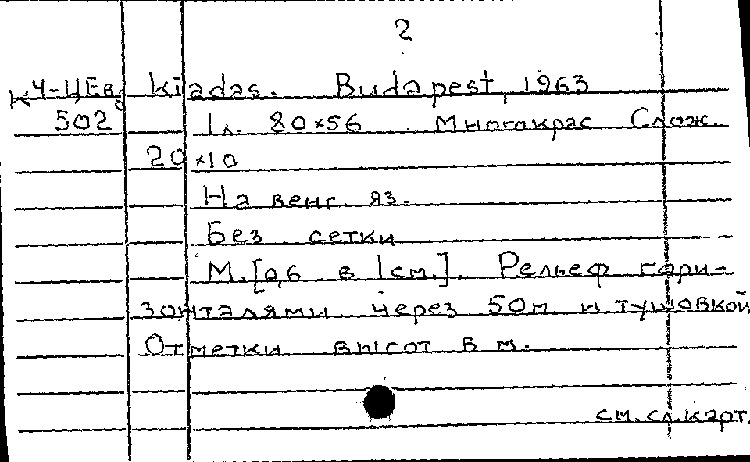 2
К4-ЦЕв Kiadas. Budapest, 1963
502 1л. 80×56 Многокрас Слож.
20×10
На венг. яз.
Без сетки
М.[0,6 в 1см.]. Рельеф гори-
зонталями через 50м и тушовкой
Отметки высот в м.
см. сл. карт.